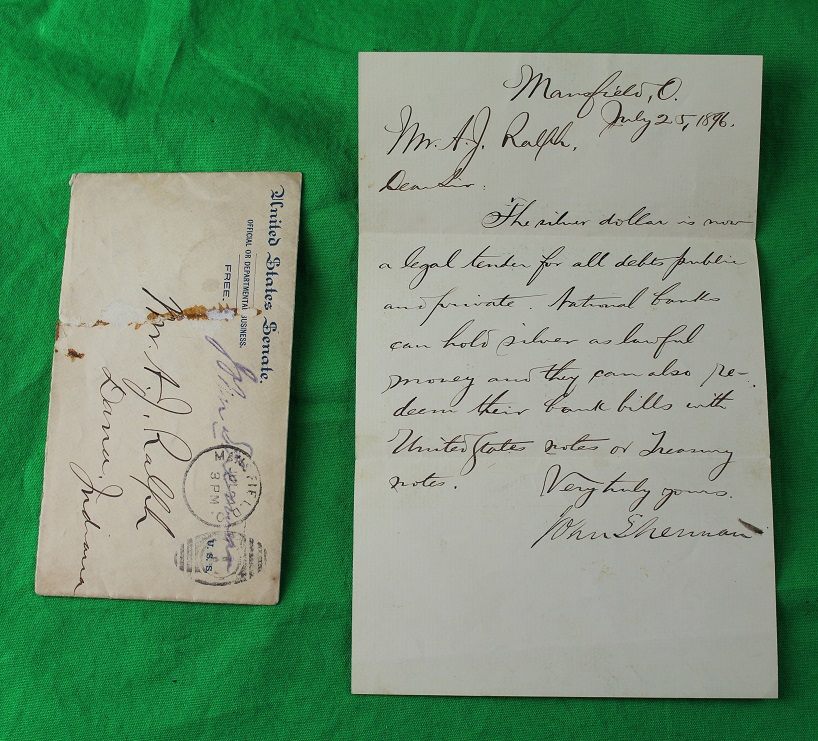 United States Senate,
OFFICIAL OR DEPARTMENTAL BUSINESS.
FREE.
John Sherman
U.S.S.
3 PM
Mr. A. J. Ralph
Dana,
Indiana
Mansfield, O.
July 25, 1896.
Mr. A. J. Ralph,
Dear Sir:
The silver dollar is now
a legal tender for all debts public
and private. National banks
can hold silver as lawful
money and they can also re-
deem their bank bills with
United States notes or Treasury
notes. Very truly yours.
John Sherman